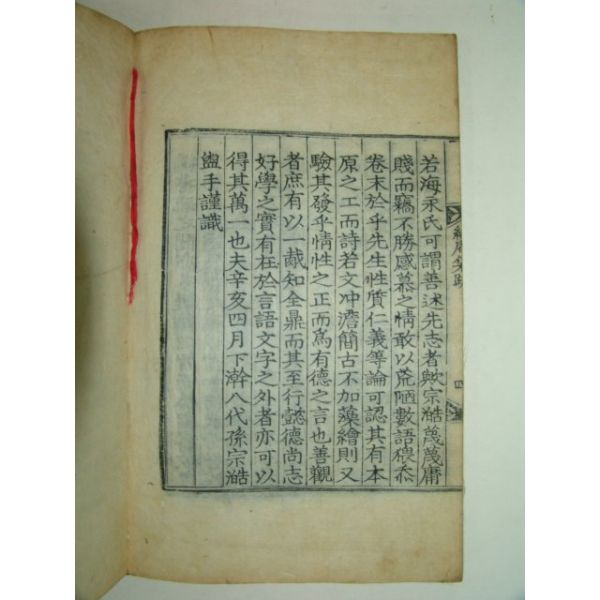 若海永氏可謂善述先志者歟宗澔蔑蔑庸
賤而竊不勝感慕之情敢以荒陋數語穢忝
卷末於乎先生性質仁義等論可認其有本
原之工而詩若文冲澹簡古不加藻繪則又
驗其發乎情性之正而爲有德之言也善觀
者庶有以一胾知全鼎而其至行懿德尚志
好學之實有在於言語文字之外者亦可以
得其萬一也夫辛亥四月下澣八代孫宗澔
盥手謹識
四